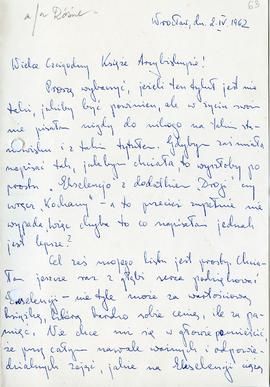 a/a Różne
63
Wrocław, dn. 2. IV. 1962
Wielce Czcigodny Księże Arcybiskupie!
Proszę wybaczyć, jeżeli ten tytuł jest nie
taki, jakiby być powinien, ale w życiu swoim
nie pisałam nigdy do nikogo na takim sta-
nowisku i z takim tytułem. Gdybym zaś miała
napisać tak, jakbym chciała, to wyszłoby po
prostu „Ekscelencjo z dodatkiem Drogi" czy
wręcz „Kochany" – a to przecież zupełnie nie
wypada, więc chyba to co napisałam jednak
jest lepsze?
Cel zaś mojego listu jest prosty. Chcia-
łam jeszcze raz z głębi serca podziękować
Ekscelencji – nie tyle może za wartościową
książkę, którą bardzo sobie cenię, ile za pa-
mięć. Nie chce mi się w głowie pomieścić
że przy całym nawale ważnych i odpowie-
dzialnych zajęć, jakie na Ekscelencji ciążą